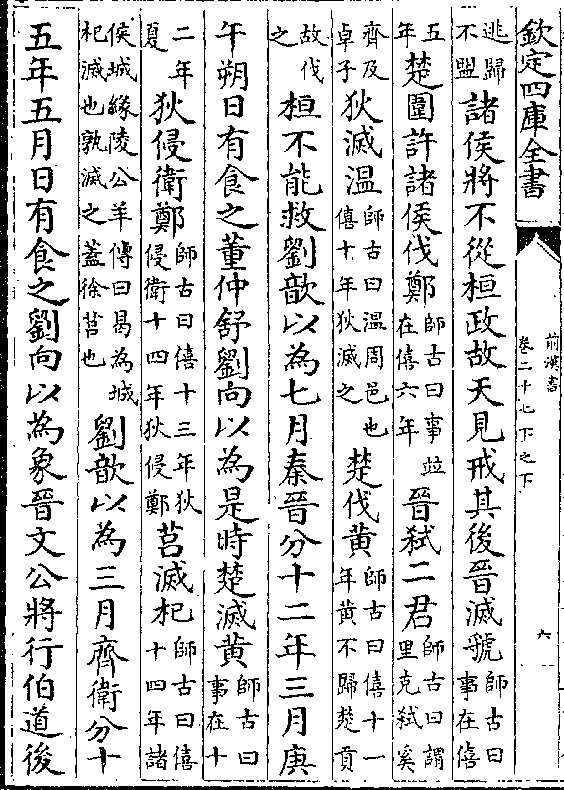 欽定四庫全書
前漢書
卷二十七下之下
六
逃歸不盟諸侯將不從桓政故天見戒其後晉滅虢師古曰事在僖
五年楚圍許諸侯伐鄭師古曰事竝在僖六年晉弒二君師古曰謂里克弒奚
齊及卓子狄滅溫師古曰溫周邑也僖十年狄滅之楚伐黃師古曰僖十一年黃不歸楚貢
故伐之桓不能救劉歆以為七月秦晉分十二年三月庚
午朔日有食之董仲舒劉向以為是時楚滅黃師古曰事在十
二年夏狄侵衛鄭師古曰僖十三年狄侵衛十四年狄侵鄭莒滅杞師古曰僖十四年諸
侯城緣陵公羊傳曰曷為城杞滅也孰滅之蓋徐莒也劉歆以為三月齊衛分十
五年五月日有食之劉向以為象晉文公將行伯道後